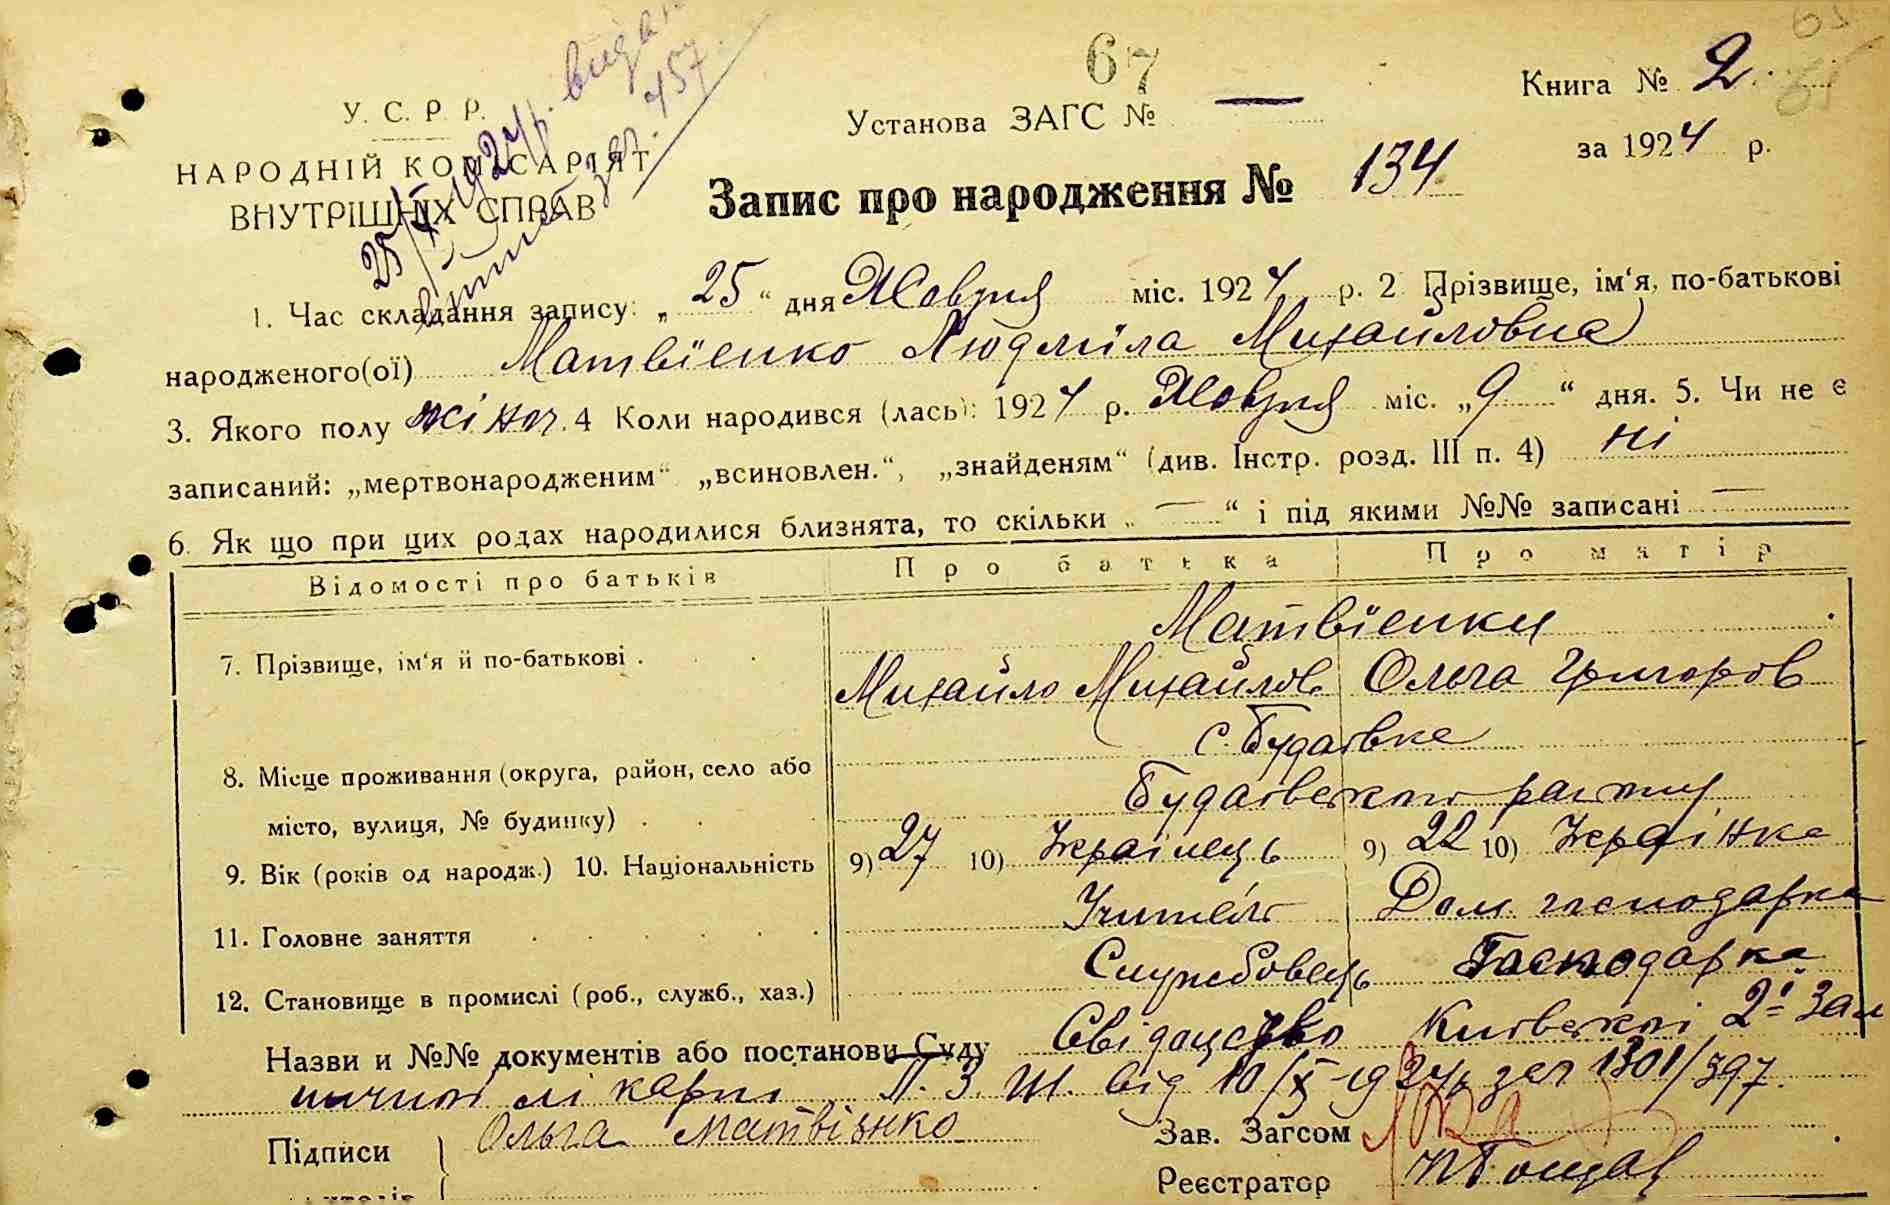 67
Книга № 2.
У. С. Р. Р.
Установа ЗАГС № —
за 1924 р.
НАРОДНІЙ КОМІСАРІЯТ
ВНУТРІШНІХ СПРАВ
25/X 1924 р. видан
витяг за № 457.
Запис про народження № 134
1. Час складання запису: „25“ дня Жовтня міс. 1924 р. 2. Прізвище, ім‘я, по-батькові
народженого(ої) Матвїенко Людмила Михайловна
3. Якого полу жіноч. 4 Коли народився (лась): 1924 р. Жовтня міс. „9“ дня. 5. Чи не є
записаний: „мертвонародженим“ „всиновлен.“, „знайденям“ (див. Інстр. розд. III п. 4) ні
6. Як що при цих родах народилися близнята, то скільки „—“ і під якими №№ записані —
Відомості про батьків Про батька Про матір
Матвїенки
7. Прізвище, ім‘я й по-батькові . Михайло Михайлов Ольга Григоров
с. Будаївка
8. Місце проживання (округа, район, село або
місто, вулиця, № будинку) . Будаївського району
9. Вік (років од народж.) 10. Національність 9) 27 10) Українець 9) 22 10) Українка
11. Головне заняття Учитель Дом. господарка
12. Становище в промислі (роб., служб., хаз.) Службовець Господарка
Назви и №№ документів або постанови Суду Свідоцтво Київської 2ої Заліз
ничної лікарні П. З. Ш. від 10/X-1924 р за № 1301/397.
Підписи Ольга Матвієнко
Зав. Загсом
Реєстратор